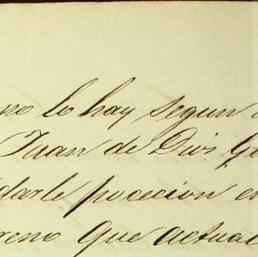 no lo hay segun
Juan de Dios
darle pocecion en
reno que actual